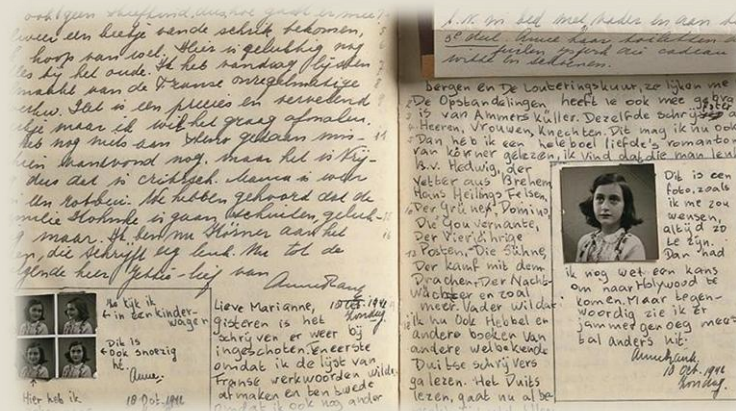 weer een beetje van de schrik bekomen,
hoop van wel. Hier is gelukkig nog
les bij het oude. Ik heb vandaag lijsten
maakt van de Franse onregelmatige
Het is een precies en vervelend
maar ik wil het graag afmaken.
heb nog niets aan Steno gedaan mis-
vanavond nog, maar het is Vrij-
dus dat is critisch. Mama is weer
een robbin. We hebben gehoord dat de
gaan schuilen, geluk-
maar. Ik ben nu Körner aan het
die schrijft erg leuk. Nu tot de
gende keer Jettie-lief van
Anne Frank
Hier kijk ik
in een kinder-
wagen
Dit is
ook snoezig
hè.
Anne.
Hier heb ik
18 Oct. 1942
Lieve Marianne,
10 Oct. 1942
Zondag.
gisteren is het
schrijven er weer bij
ingeschoten. Ten eerste
omdat ik de lijst van
Franse werkwoorden wilde
afmaken en ten tweede
omdat ik ook nog ander
in bed met vader en aan
cadeau
bergen en De Louteringskuur, ze lijken me
De Opstandelingen heeft ie ook mee ge
is van Ammers Küller. Dezelfde schrijfster
Heeren, Vrouwen, Knechten. Dit mag ik nu ook
Dan heb ik een heleboel liefde's romantom
van körner gelezen, ik vind dat die man leuk
B.v. Hedwig, der
Vetter aus Brehem
Hans Heilings Felsen,
Der Grüne, Domino,
Die Gouvernante,
Der Vierjährige
Posten, Die Sühne,
Der Kampf mit dem
Drachen, Der Nacht-
wächter en zoal
meer. Vader wil dat
ik nu ook Hebbel en
andere boeken van
andere welbekende
Duitse schrijvers
ga lezen. Het Duits
lezen, gaat nu al be-
Dit is een
foto, zoals
ik me zou
wensen,
altijd zo
te zijn.
Dan had
ik nog wel een kans
om naar Holywood te
komen. Maar tegen-
woordig zie ik er
jammer genoeg mees-
tal anders uit.
Anne Frank
10 Oct. 1942
Zondag.